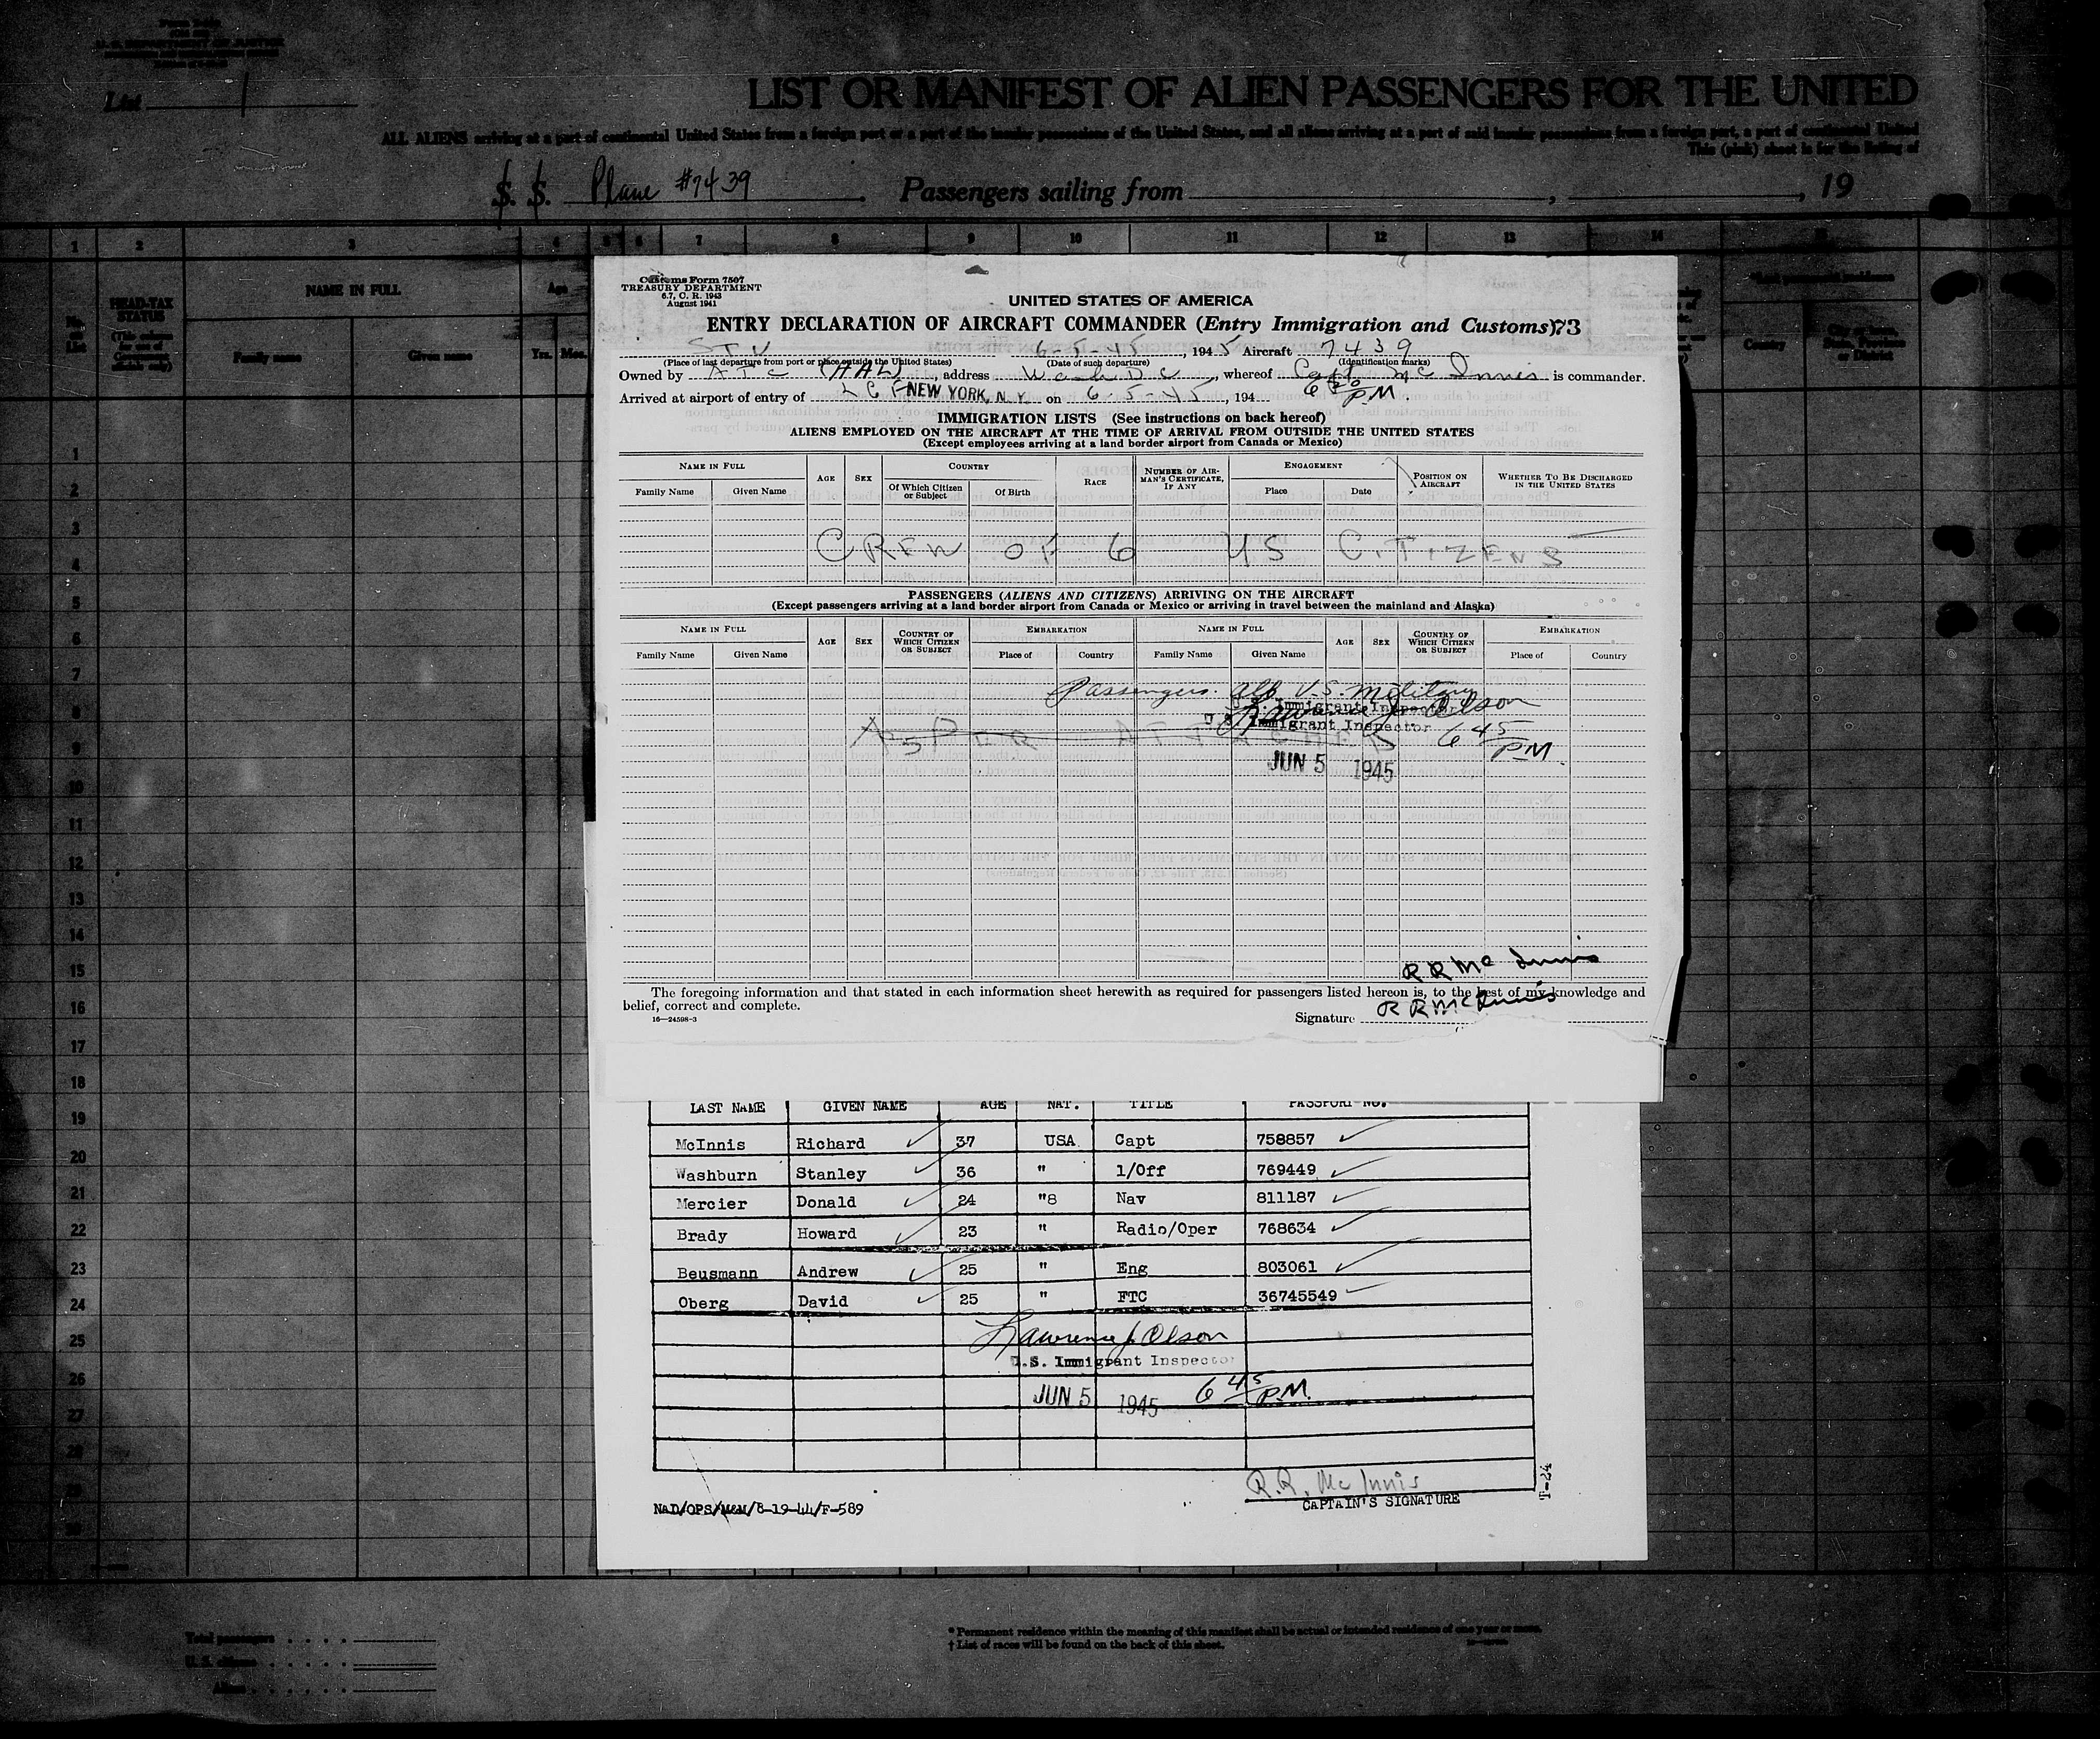 List 1
LIST OR MANIFEST OF ALIEN PASSENGERS FOR THE UNITED
ALL ALIENS arriving at a port of continental United States from a foreign port or a port of the insular possessions of the United States, and all aliens arriving at a port of said insular possessions from a foreign port, a port of continental United
This (pink) sheet is for the listing of
S. S. Plane #7439 Passengers sailing from , , 19
1 2 3 4 5 6 7 8 9 10 11 12 13 14
HEAD-TAX STATUS NAME IN FULL Age
No. on List Family name Given name Yrs. Mos. Country
Customs Form 7507
TREASURY DEPARTMENT
6.7, C. R. 1943
August 1941
UNITED STATES OF AMERICA
ENTRY DECLARATION OF AIRCRAFT COMMANDER (Entry Immigration and Customs) 73
STV 6-5-45, 1945 Aircraft 7439
(Place of last departure from port or place outside the United States) (Date of such departure) (Identification marks)
Owned by ATC (AAL), address Wash DC, whereof Capt Mc Innis is commander.
Arrived at airport of entry of NEW YORK, N. Y. on 6-5-45, 194 PM.
IMMIGRATION LISTS (See instructions on back hereof)
ALIENS EMPLOYED ON THE AIRCRAFT AT THE TIME OF ARRIVAL FROM OUTSIDE THE UNITED STATES
(Except employees arriving at a land border airport from Canada or Mexico)
NAME IN FULL AGE SEX COUNTRY RACE NUMBER OF AIRMAN'S CERTIFICATE, IF ANY ENGAGEMENT POSITION ON AIRCRAFT WHETHER TO BE DISCHARGED IN THE UNITED STATES
Family Name Given Name Of Which Citizen or Subject Of Birth Place Date
CREW OF 6 US CITIZENS
PASSENGERS (ALIENS AND CITIZENS) ARRIVING ON THE AIRCRAFT
(Except passengers arriving at a land border airport from Canada or Mexico or arriving in travel between the mainland and Alaska)
NAME IN FULL AGE SEX COUNTRY OF WHICH CITIZEN OR SUBJECT EMBARKATION NAME IN FULL AGE SEX COUNTRY OF WHICH CITIZEN OR SUBJECT EMBARKATION
Family Name Given Name Place of Country Family Name Given Name Place of Country
Passengers. all U.S. Military
U.S. Immigrant Inspector
Lawrence J. Olson
U.S. Immigrant Inspector
AS PER ATTACHED 6 45 PM.
JUN 5 1945
R R Mc Innis
The foregoing information and that stated in each information sheet herewith as required for passengers listed hereon is, to the best of my knowledge and
belief, correct and complete.
16—24598-3 Signature R R McInnis
LAST NAME GIVEN NAME AGE NAT. TITLE PASSPORT NO.
McInnis Richard 37 USA Capt 758857
Washburn Stanley 36 " 1/Off 769449
Mercier Donald 24 "8 Nav 811187
Brady Howard 23 " Radio/Oper 768634
Beusmann Andrew 25 " Eng 803061
Oberg David 25 " FTC 36745549
Lawrence J. Olson
U.S. Immigrant Inspector
JUN 5 1945 6 45 P.M.
R.R. Mc Innis
NAD/OPS/M&M/8-19-44/F-589 CAPTAIN'S SIGNATURE
T-24
1
2
3
4
5
6
7
8
9
10
11
12
13
14
15
16
17
18
19
20
21
22
23
24
25
26
27
28
29
30
Total passengers
U. S. citizens
Aliens
* Permanent residence within the meaning of this manifest shall be actual or intended residence of one year or more.
† List of races will be found on the back of this sheet.